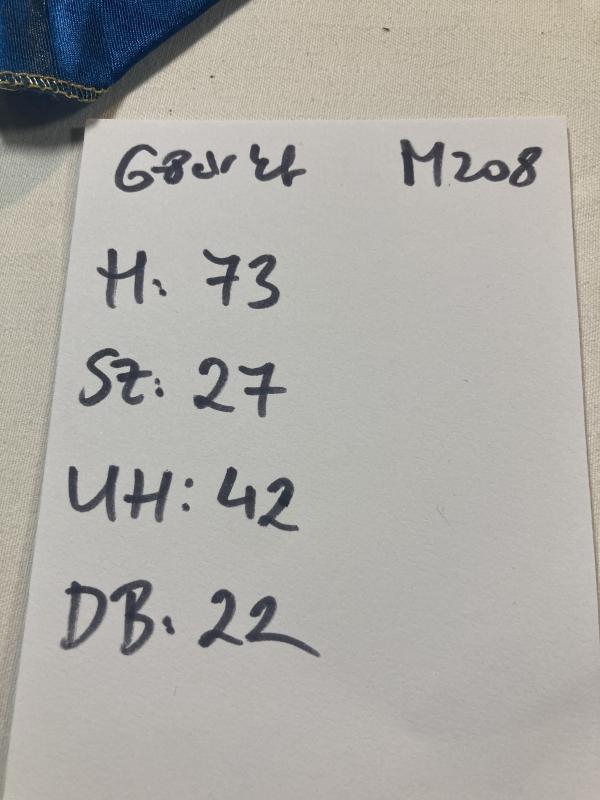 M208
H: 73
SZ: 27
UH: 42
DB: 22